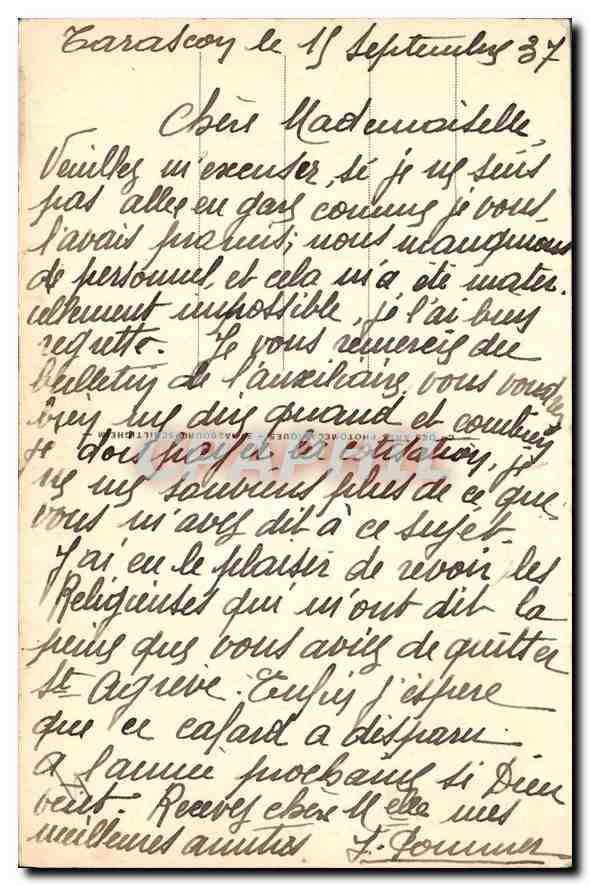 Tarascon le 15 septembre 37
Chère Mademoiselle,
Veuillez m'excuser, si je ne suis
pas allée en gare comme je vous
l'avais promis; nous manquions
de personnel, et cela m'a été mater-
iellement impossible, je l'ai bien
regretté. Je vous remercie du
bulletin de l'auxiliaire, vous voudrez
bien me dire quand et combien
je dois payer la cotisation, je
ne me souviens plus de ce que
vous m'avez dit à ce sujet.
J'ai eu le plaisir de revoir les
Religieuses qui m'ont dit la
peine que vous aviez de quitter
St Agrève. Enfin j'espère
que ce cafard a disparu.
A l'année prochaine si Dieu
veut. Recevez chère Melle mes
meilleures amitiés J. Pommier
CIE DES ARTS PHOTOMECANIQUES - STRASBOURG-SCHILTIGHEIM
CPAPHIL